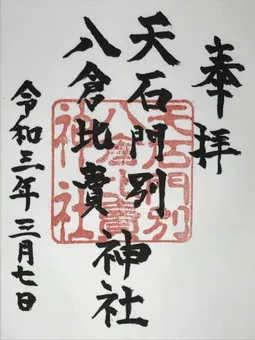 奉拝
天石門別
八倉比賣神社
令和三年三月七日
天石門別
八倉比賣
神社